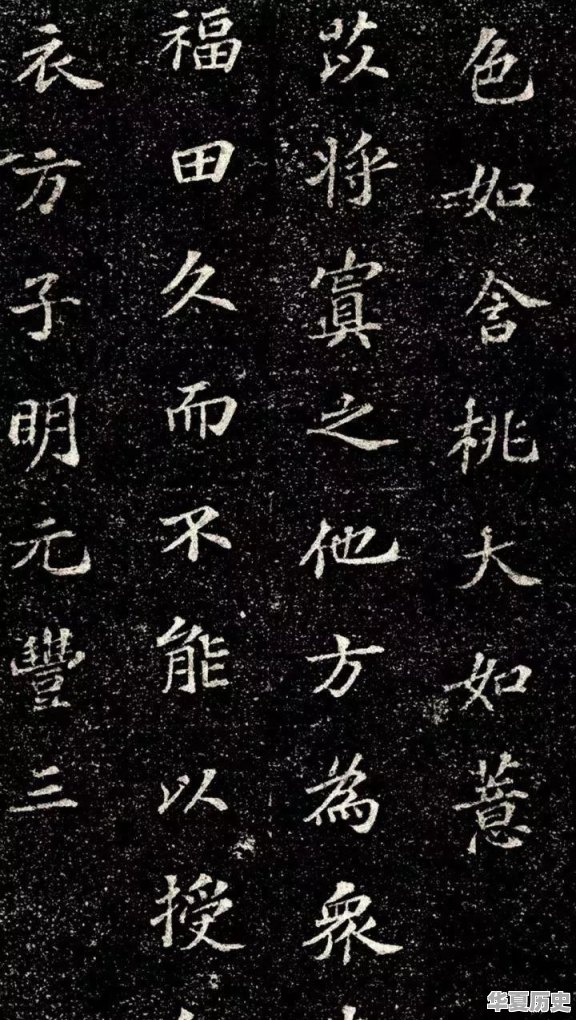 色如含桃大如薏
苡將寘之他方為眾
福田久而不能以授
衣方子明元豐三
华夏历史